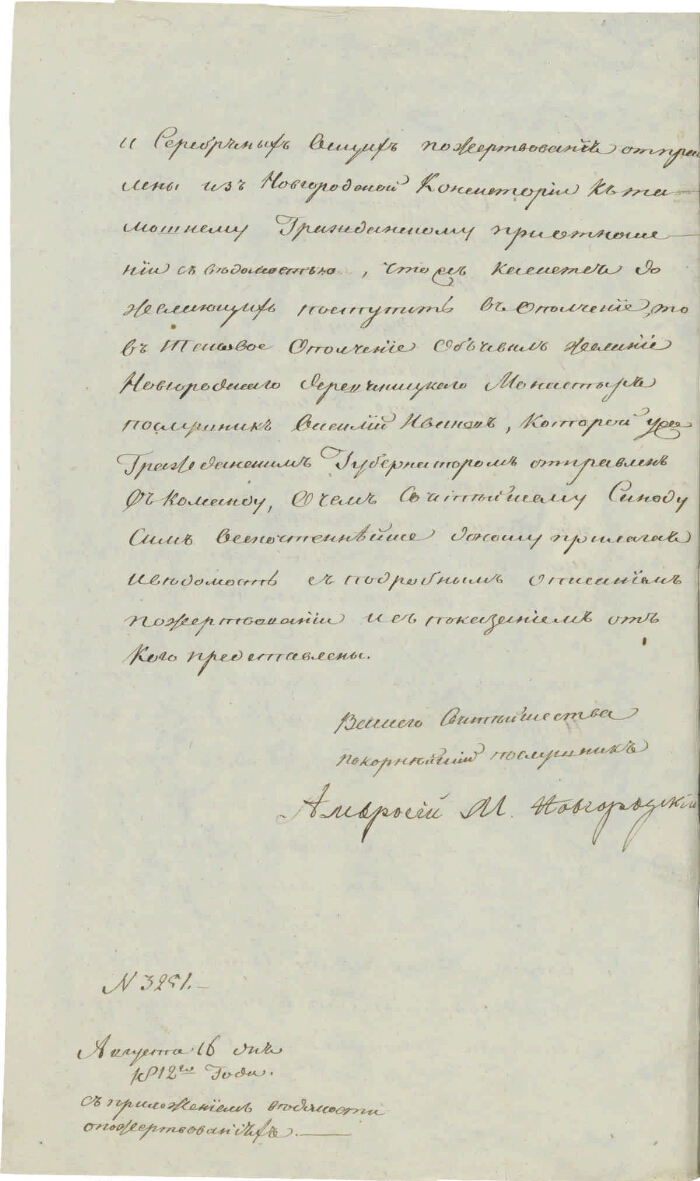 и Серебрѣныхъ Вещихъ пожертвованія отпра
лены изъ Новгородской Консисторіи къ та—
мошнему Гражданскому при отноше—
ніи съ вѣдомостью, что съ касаетса до
желающихъ поступить въ Ополченіе, то
въ таковое Ополченіе объявилъ желаніе
Новгородскаго Деревяницкаго Монастыра
послушникъ Василій Ивановъ, которой уже
Гражданскимъ Губернаторомъ отправленъ
въ команду, о чемъ Святѣйшему Синоду
симъ всепочтеннѣйше доношу прилагая
и вѣдомость съ подробнымъ описаніемъ
пожертвованіи и съ показаніемъ отъ
кого представлены.
Вашего Святѣйшества
покорнѣйшій послушникъ
Амвросій М. Новгородскій
N 3251.—
Августа 16 дня
1812го Года.
съ приложеніемъ вѣдомости
о пожертвованіяхъ.—